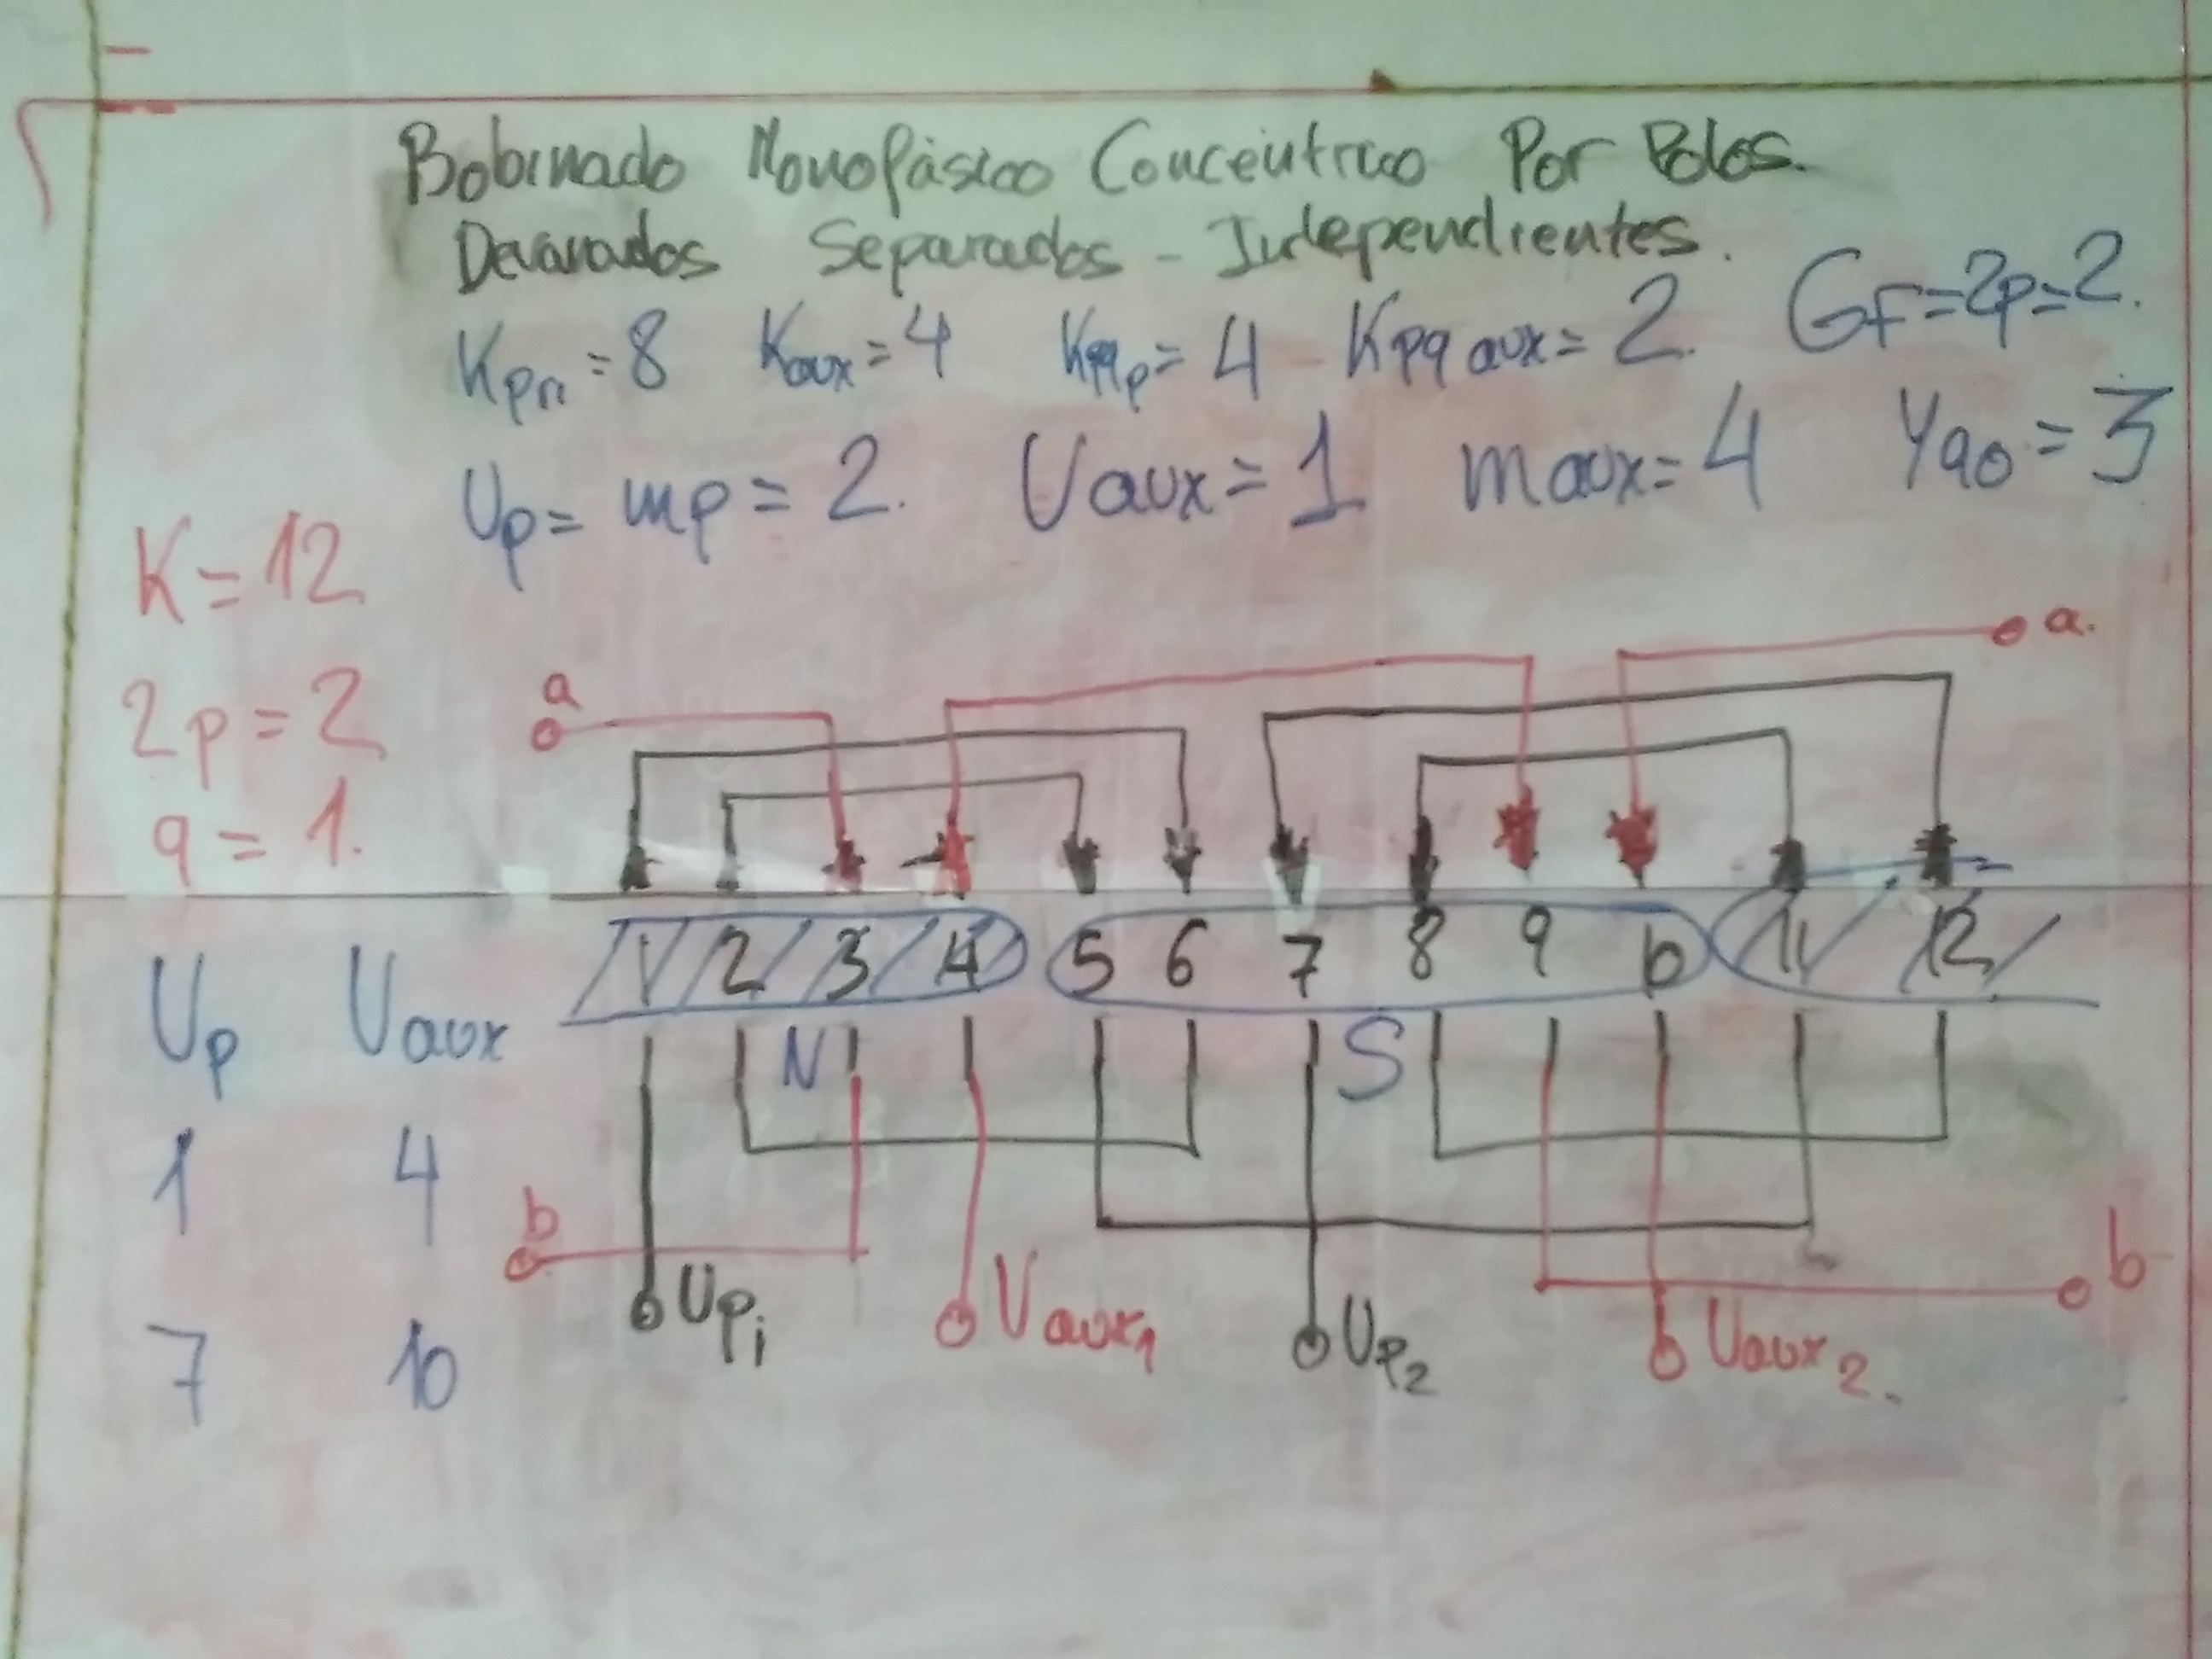 Bobinado Monofásico Concéntrico Por Polos.
Devanados Separados - Independientes.
Kpri = 8 Kaux = 4 Kpqp = 4 Kpq aux = 2. GF = 2p = 2.
Up = mp = 2. Uaux = 1 maux = 4 Y90 = 3
K = 12
2p = 2
q = 1.
a a.
1 2 3 4 5 6 7 8 9 10 11 12
N S
Up Uaux
1 4
7 10
b b
Up1 Uaux1 Up2 Uaux2.